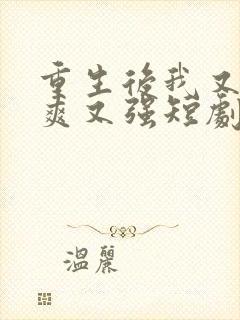 重生後我又
爽又強短劇
溫麗